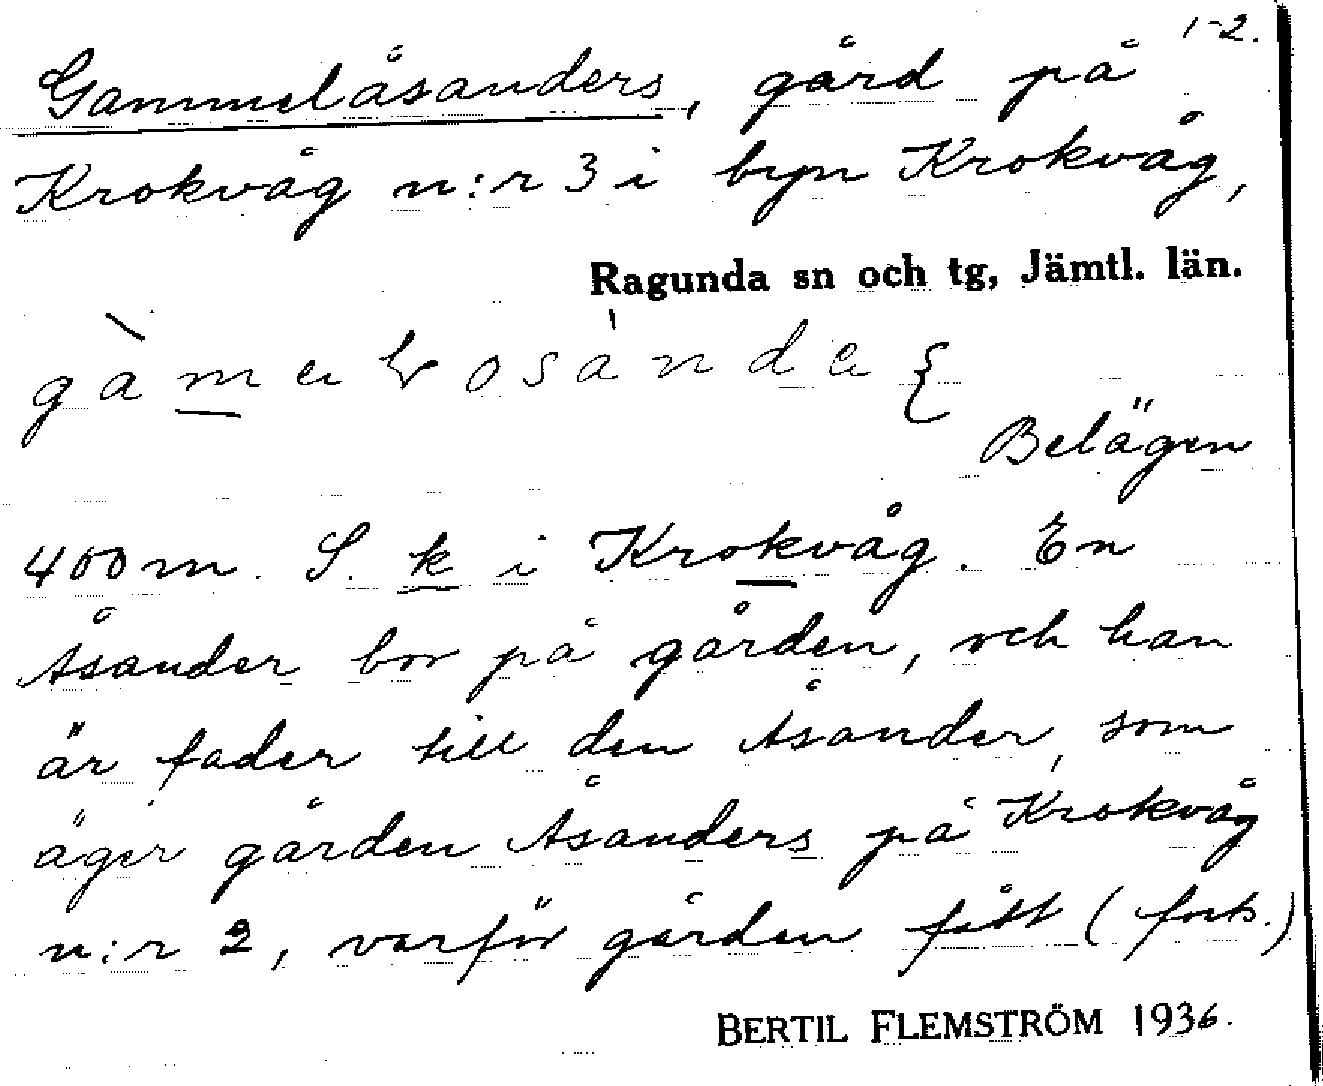 1-2.
Gammelåsanders, gård på
Krokvåg n:r 3 i byn Krokvåg,
Ragunda sn och tg, Jämtl. län.
Belägen
400 m. S. k i Krokvåg. En
Åsander bor på gården, och han
är fader till den Åsander, som
äger gården Åsanders på Krokvåg
n:r 2, varför gården fått (forts.)
BERTIL FLEMSTRÖM 1936.